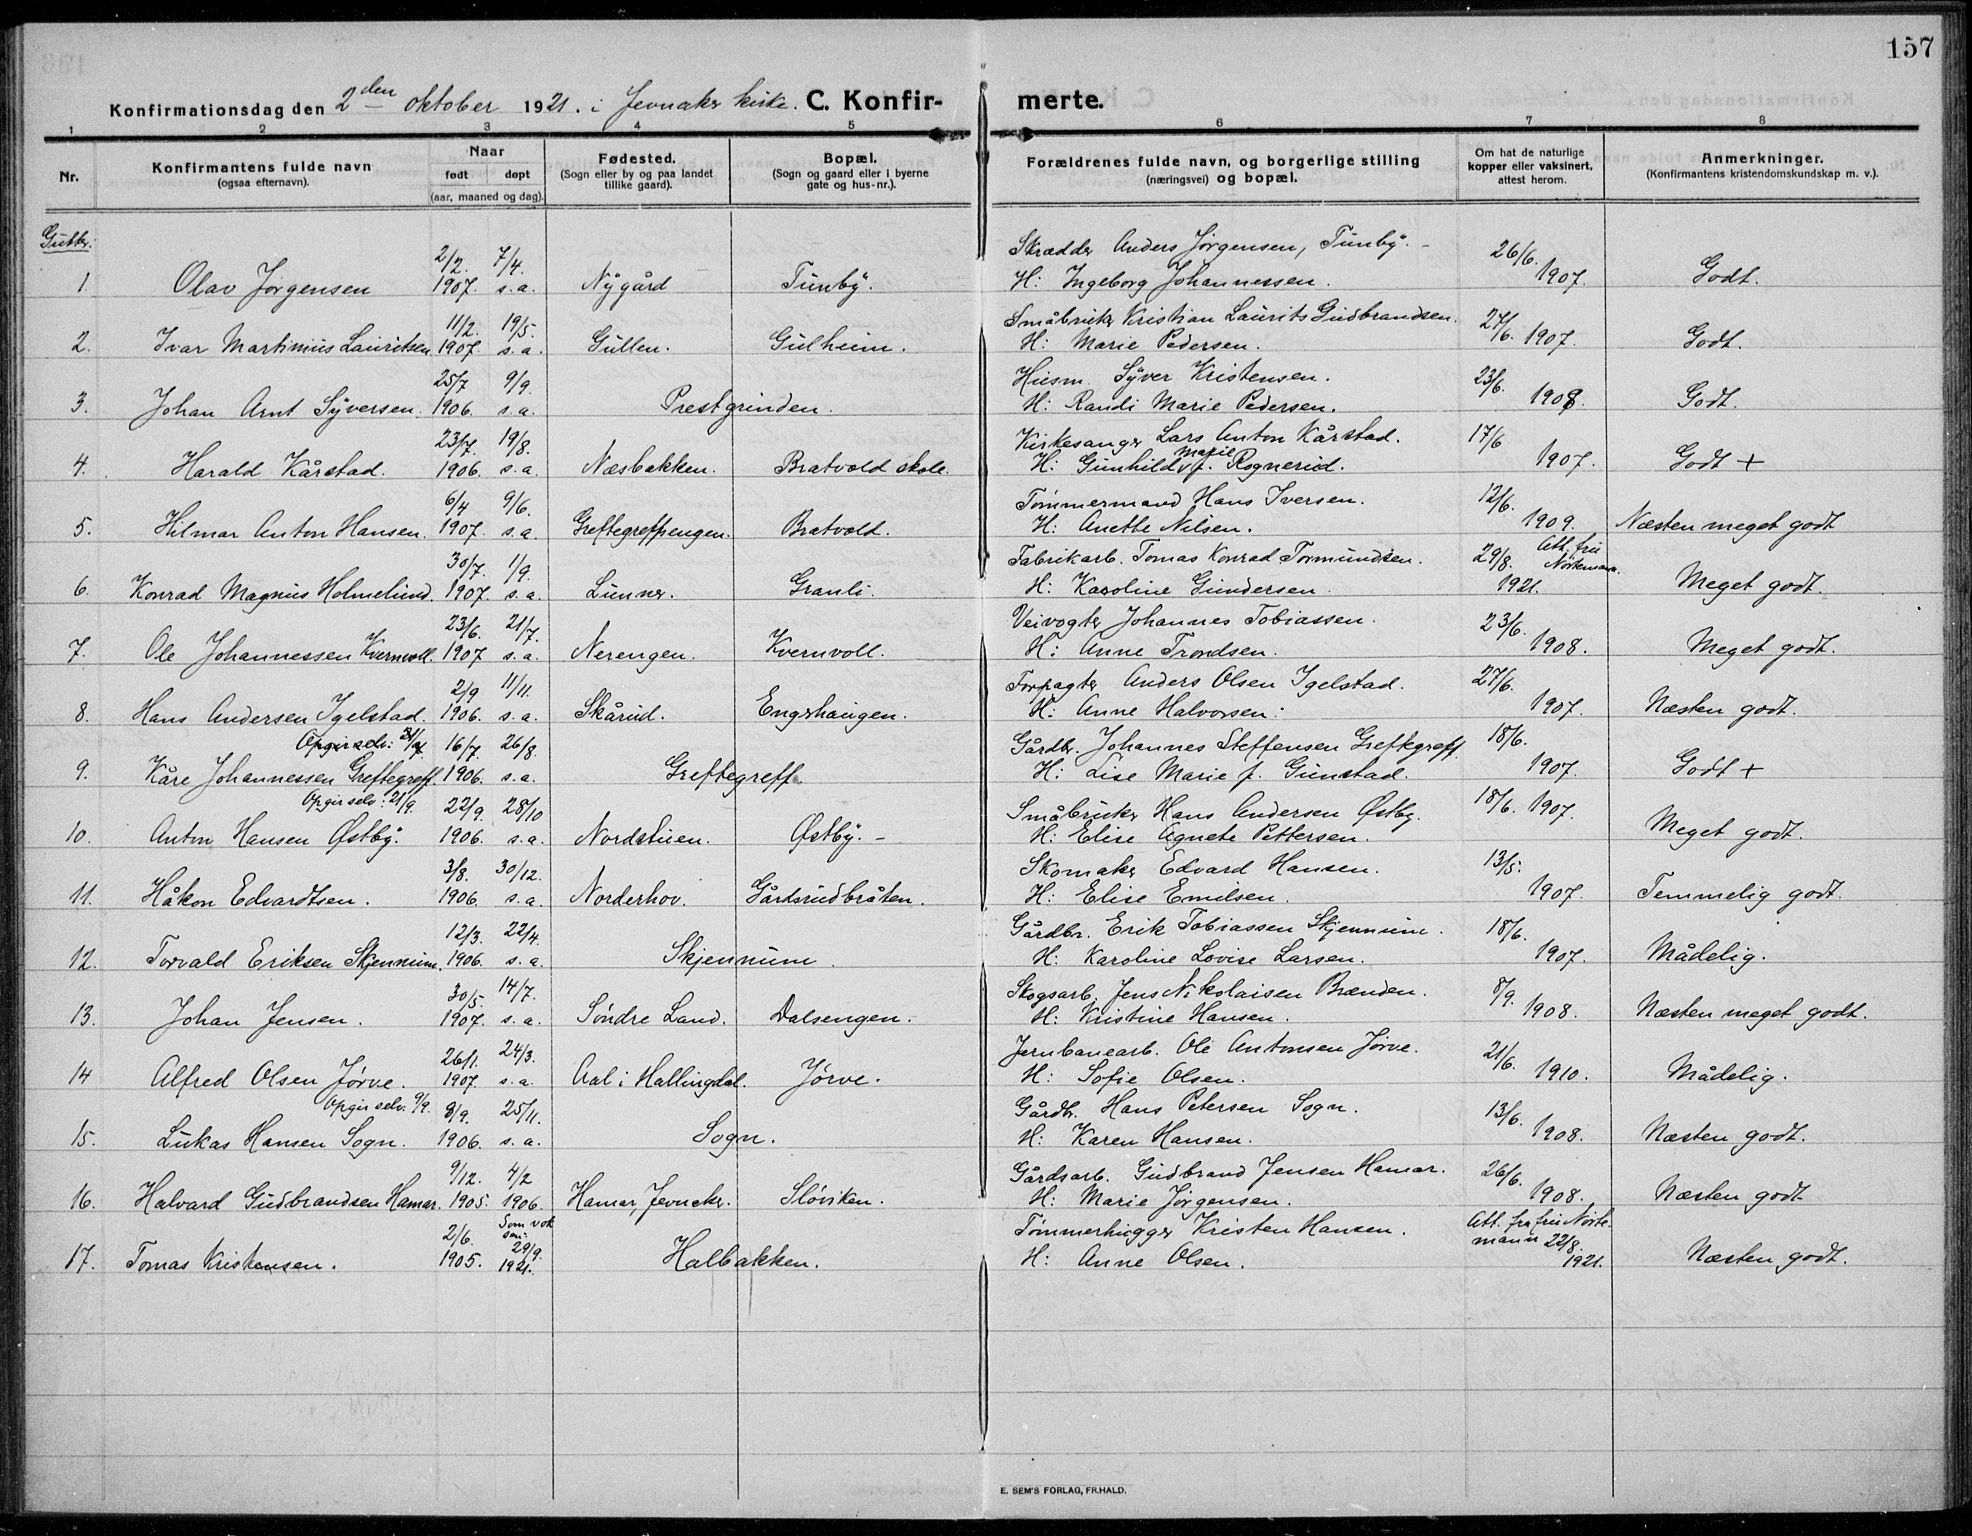 157
Konfirmationsdag den 2den oktober 1921. i Jevnaker kirke. C. Konfirmerte.
1 2 3 4 5 6 7 8
Nr.
Konfirmantens fulde navn
(ogsaa efternavn).
Naar
født døpt
(aar, maaned og dag).
Fødested.
(Sogn eller by og paa landet
tillike gaard).
Bopæl.
(Sogn og gaard eller i byerne
gate og hus-nr.).
Forældrenes fulde navn, og borgerlige stilling
(næringsvei) og bopæl.
Om hat de naturlige
kopper eller vaksinert,
attest herom.
Anmerkninger.
(Konfirmantens kristendomskundskap m. v.).
Gutter:
2/2. 7/4. Skrædder Anders Jørgensen, Tunby. 26/6.
1. Olav Jørgensen 1907. s.a. Nygård Tunby. H: Ingeborg Johannessen. 1907. Godt.
11/2. 19/5. Småbruker Kristian Laurits Gudbrandsen. 27/6. 1907.
2. Ivar Martinius Lauritsen 1907. s.a. Gullen. Gulheim. H: Marie Pedersen. Godt.
25/7 9/9. Husm. Syver Kristensen. 23/6.
3. Johan Arnt Syversen. 1906. s.a. Prestgrinden. H: Randi Marie Pedersen. 1908. Godt.
23/7. 19/8. Kirkesanger Lars Anton Kårstad. 17/6
4. Harald Kårstad. 1906. s.a. Næsbakken. Bratvold skole. H: Gunhild Marie f. Rognerud. 1907. Godt +
6/4 9/6. Tømmermand Hans Iversen. 12/6.
5. Hilmar Anton Hansen. 1907. s.a. Greftegreffengen. Bratvold. H: Anette Nilsen. 1909. Næsten meget godt
30/7. 1/9. Fabrikarb. Tomas Konrad Tormundsen. 29/8. Att. fru
6. Konrad Magnus Holmelund. 1907. s.a. Lunner. Granli. H: Karoline Gundersen. 1921. Meget godt.
23/6. 21/7. Veivogter Johannes Tobiassen. 23/6.
7. Ole Johannessen Kvernvoll. 1907 s.a. Nerengen. Kvernvoll. H: Anne Trondsen. 1908. Meget godt.
2/9 11/11. Forpagter Anders Olsen Igelstad. 27/6.
8. Hans Andersen Igelstad. 1906. s.a. Skårud. Engerhaugen. H: Anne Halvorsen. 1907. Næsten godt.
Opgir selv: 16/7. 26/8. Gårdbr. Johannes Steffensen Greftegreff. 18/6.
9. Kåre Johannessen Greftegreff. 1906. s.a. Greftegreff. H: Lise Marie f. Gunstad. 1907. Godt +
Opgir selv: 21/9. 22/9. 28/10 Småbruker Hans Andersen Østby. 18/6. 1907.
10. Anton Hansen Østby. 1906. s.a. Nordstuen. Østby. H: Elise Agnete Pettersen. Meget godt.
3/8. 30/12. Skomaker Edvard Hansen. 13/5.
11. Håkon Edvardtsen. 1906. s.a. Norderhov. Gårdsrudbråten. H: Elise Emilsen. 1907. Temmelig godt.
12/3. 22/4. Gårdbr. Erik Tobiassen Skjennum. 18/6.
12. Torvald Eriksen Skjennum. 1906. s.a. Skjennum. H: Karoline Lovise Larsen. 1907. Mådelig.
30/5. 14/7. Skogsarb. Jens Nikolaisen Brænden. 8/9.
13. Johan Jensen. 1907. s.a. Søndre Land. Dalsengen. H: Kristine Hansen. 1908. Næsten meget godt.
26/1. 24/3. Jernbanearb. Ole Antonsen Jørve. 21/6.
14 Alfred Olsen Jørve. 1907. s.a. Aal i Hallingdal. Jørve. H: Sofie Olsen. 1910. Mådelig.
Opgir selv: 9/9. 8/9. 25/11. Gårdbr. Hans Petersen Sogn. 13/6.
15. Lukas Hansen Sogn. 1906. s.a. Sogn. H: Karen Hansen. 1908. Næsten godt.
9/12. 4/2 Gårdsarb. Gudbrand Jensen Hamar. 26/6.
16. Halvard Gudbrandsen Hamar. 1905. 1906. Hamar, Jevnaker. Sløviken. H: Marie Jørgensen. 1908. Næsten godt
2/6. 29/9. Tømmerhugger Kristen Hansen. Att. fra fru Nortemann 22/8.
17. Tomas Kristensen. 1905. 1921. Halbakken. H: Anne Olsen. 1921. Næsten godt.
E. SEM'S FORLAG, FR.HALD.